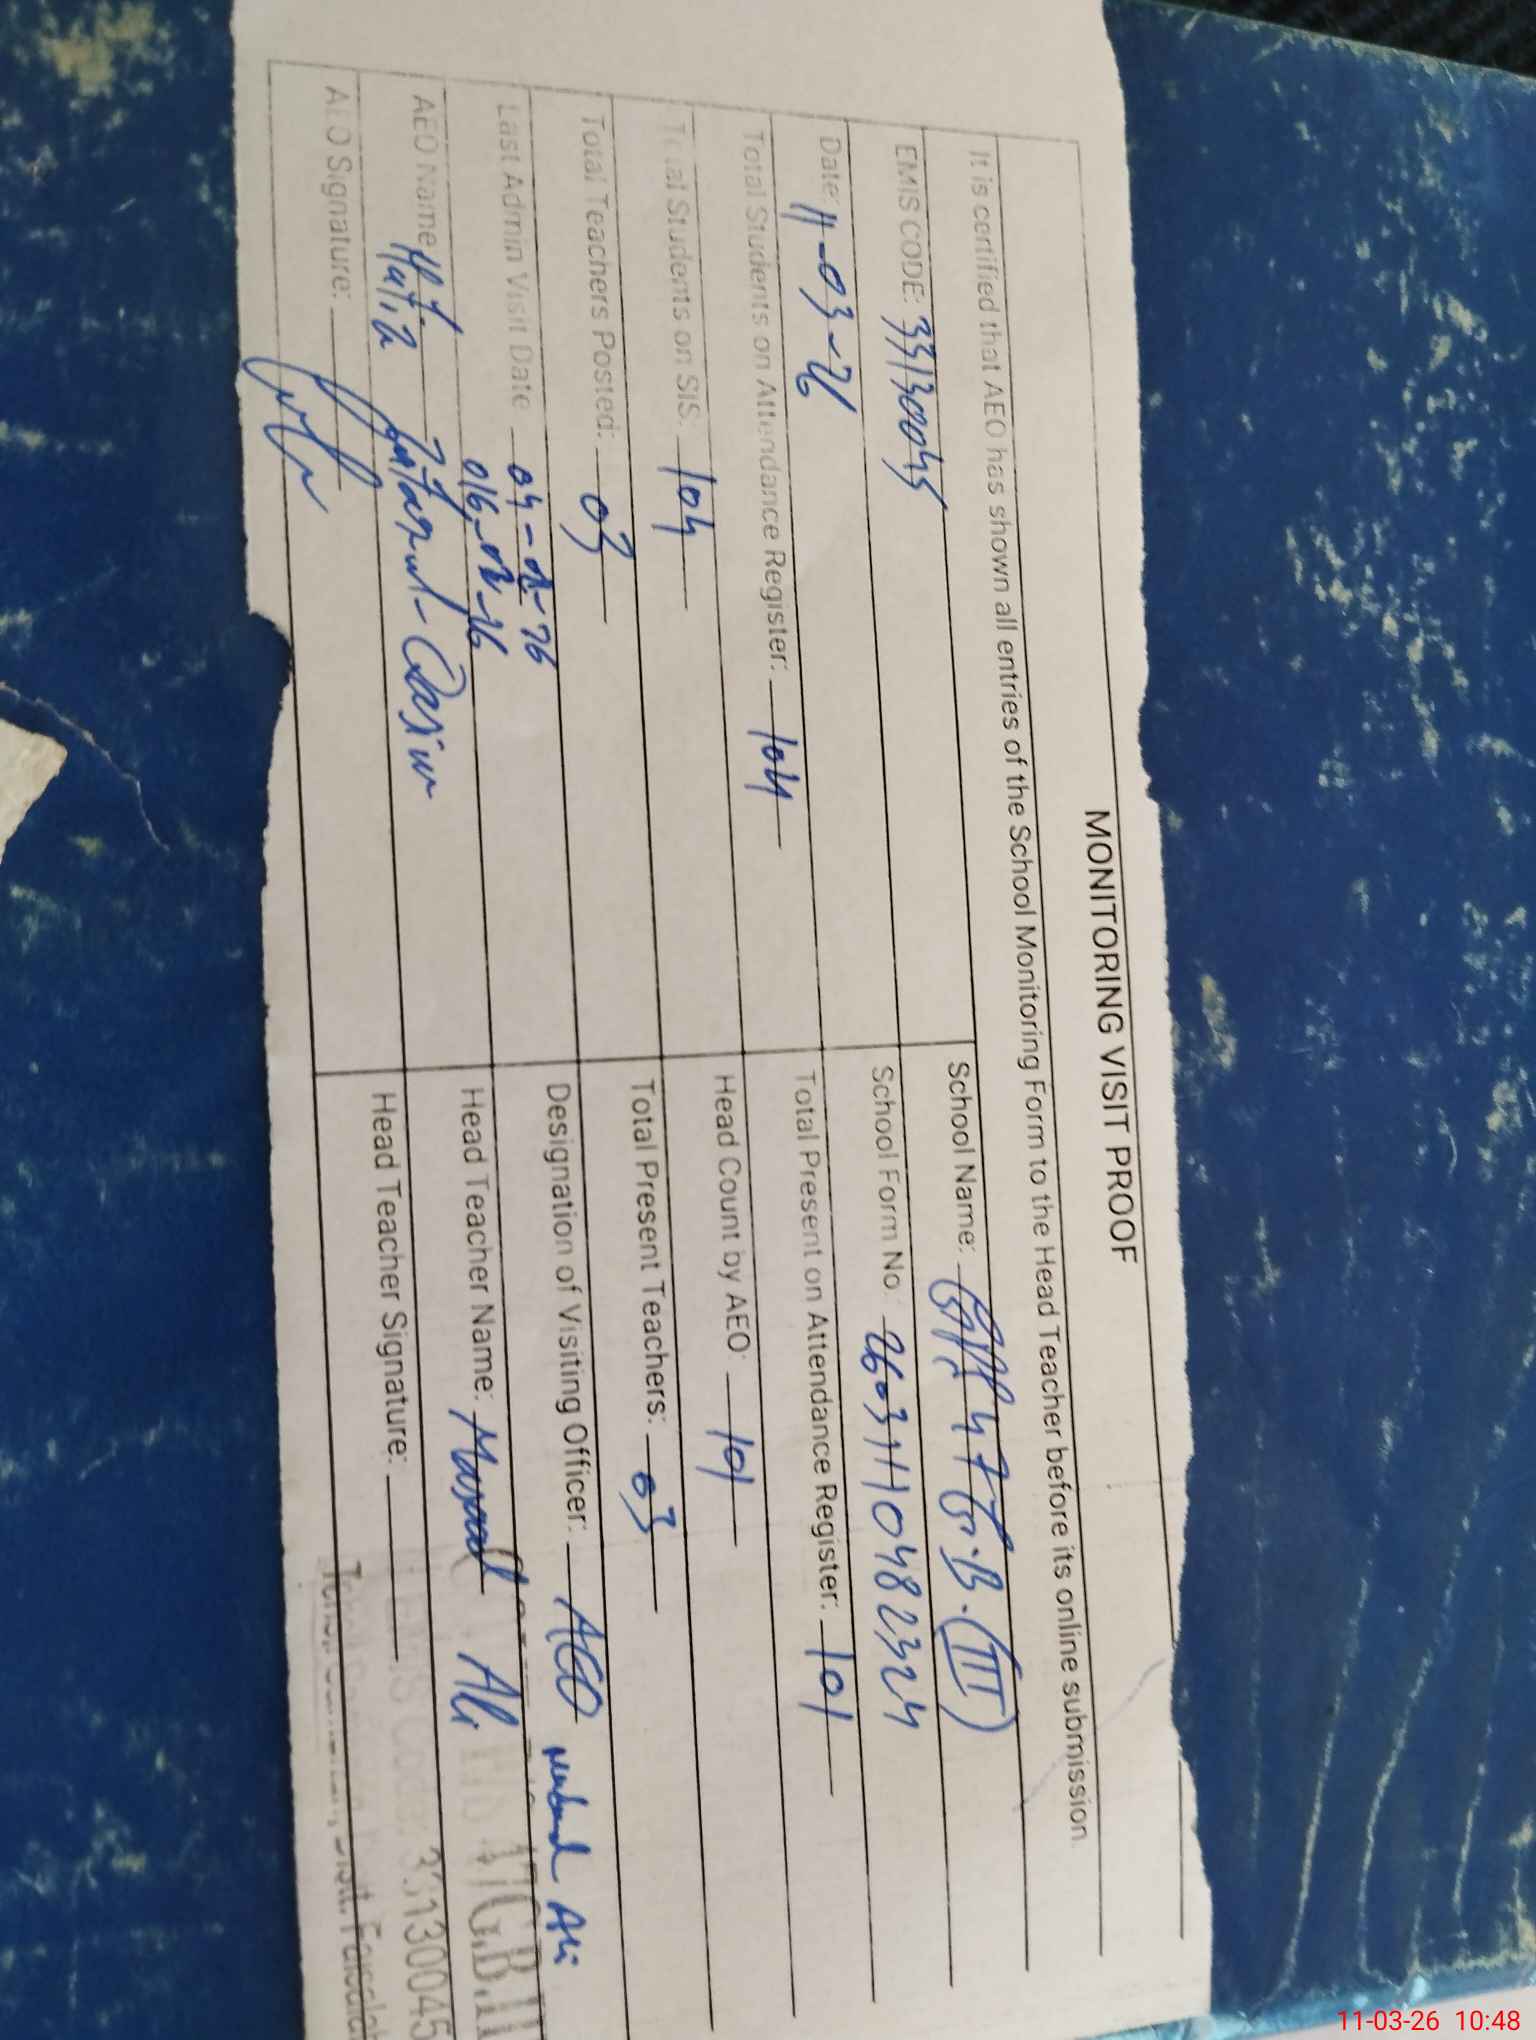 MONITORING VISIT PROOF
It is certified that AEO has shown all entries of the School Monitoring Form to the Head Teacher before its online submission.
EMIS CODE: 33130045 School Name: 47 G.B.(III)
Date: 11-03-26 School Form No.: 26031110482324
Total Students on Attendance Register: 104 Total Present on Attendance Register: 101
Total Students on SIS: 104 Head Count by AEO: 101
Total Teachers Posted: 03 Total Present Teachers: 03
Last Admin Visit Date Designation of Visiting Officer: AEO
AEO Name Hafiz Head Teacher Name: Ali
AEO Signature: Head Teacher Signature:
Ali
47G.B.III
33130045
11-03-26 10:48